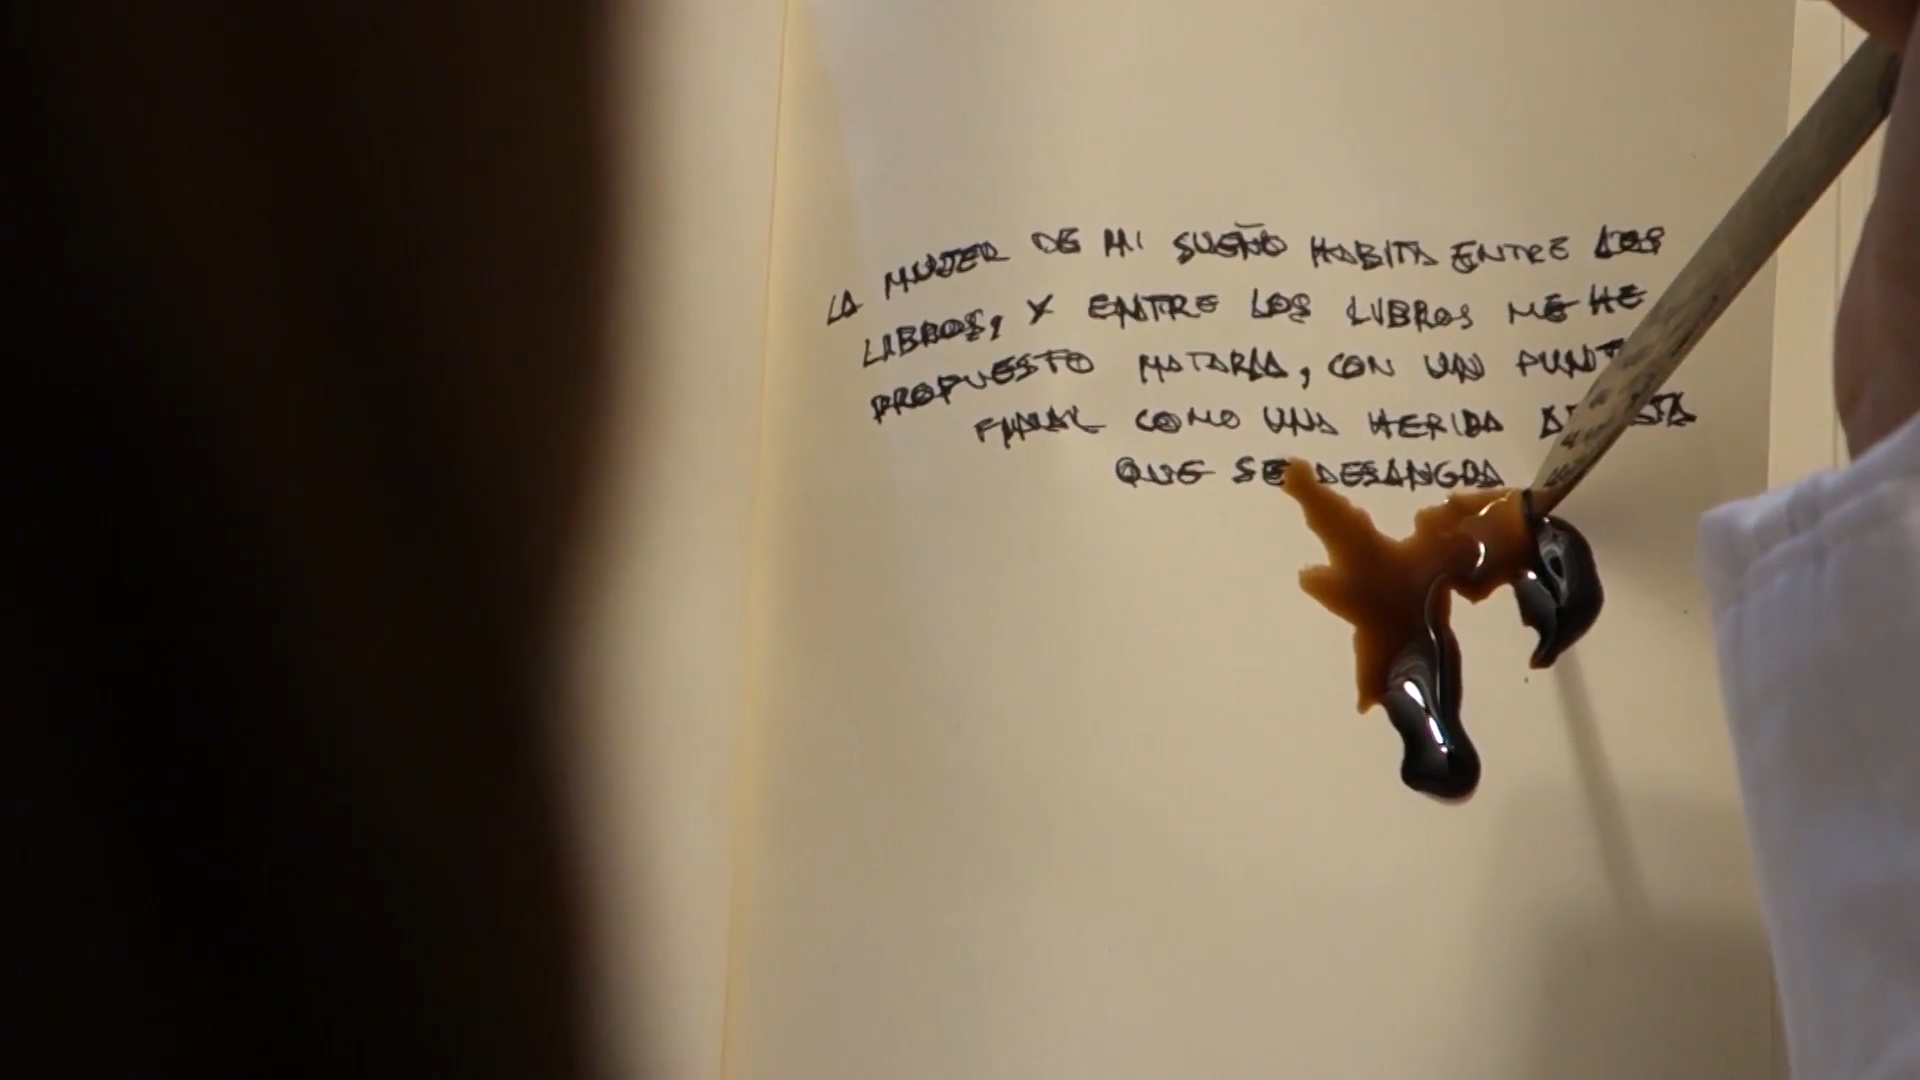 LA MUJER DE MI SUEÑO HABITA ENTRE LOS
LIBROS, Y ENTRE LOS LIBROS ME HE
PROPUESTO MATARLA, CON UN PUNT
FINAL COMO UNA HERIDA
QUE SE DESANGRA